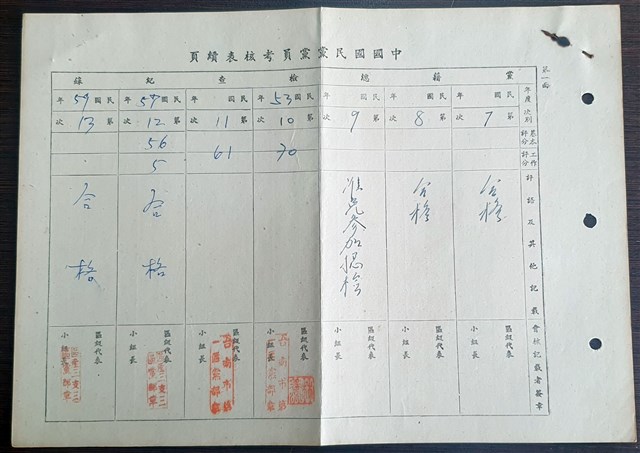 中國國民黨黨員考核表續頁
第一面
黨籍總檢查紀錄
年度次別
基本評分
工作評分
評語及其他記載
會核記載者簽章
民國 年
第7次
合格
區級代表
小組長
民國 年
第8次
合格
區級代表
小組長
民國 年
第9次
准免參加總檢
區級代表
小組長
民國53年
第10次
70
區級代表
小組長
民國 年
第11次
61
區級代表
小組長
民國57年
第12次
56
5
合格
區級代表
小組長
民國59年
第13次
合格
區級代表
小組長